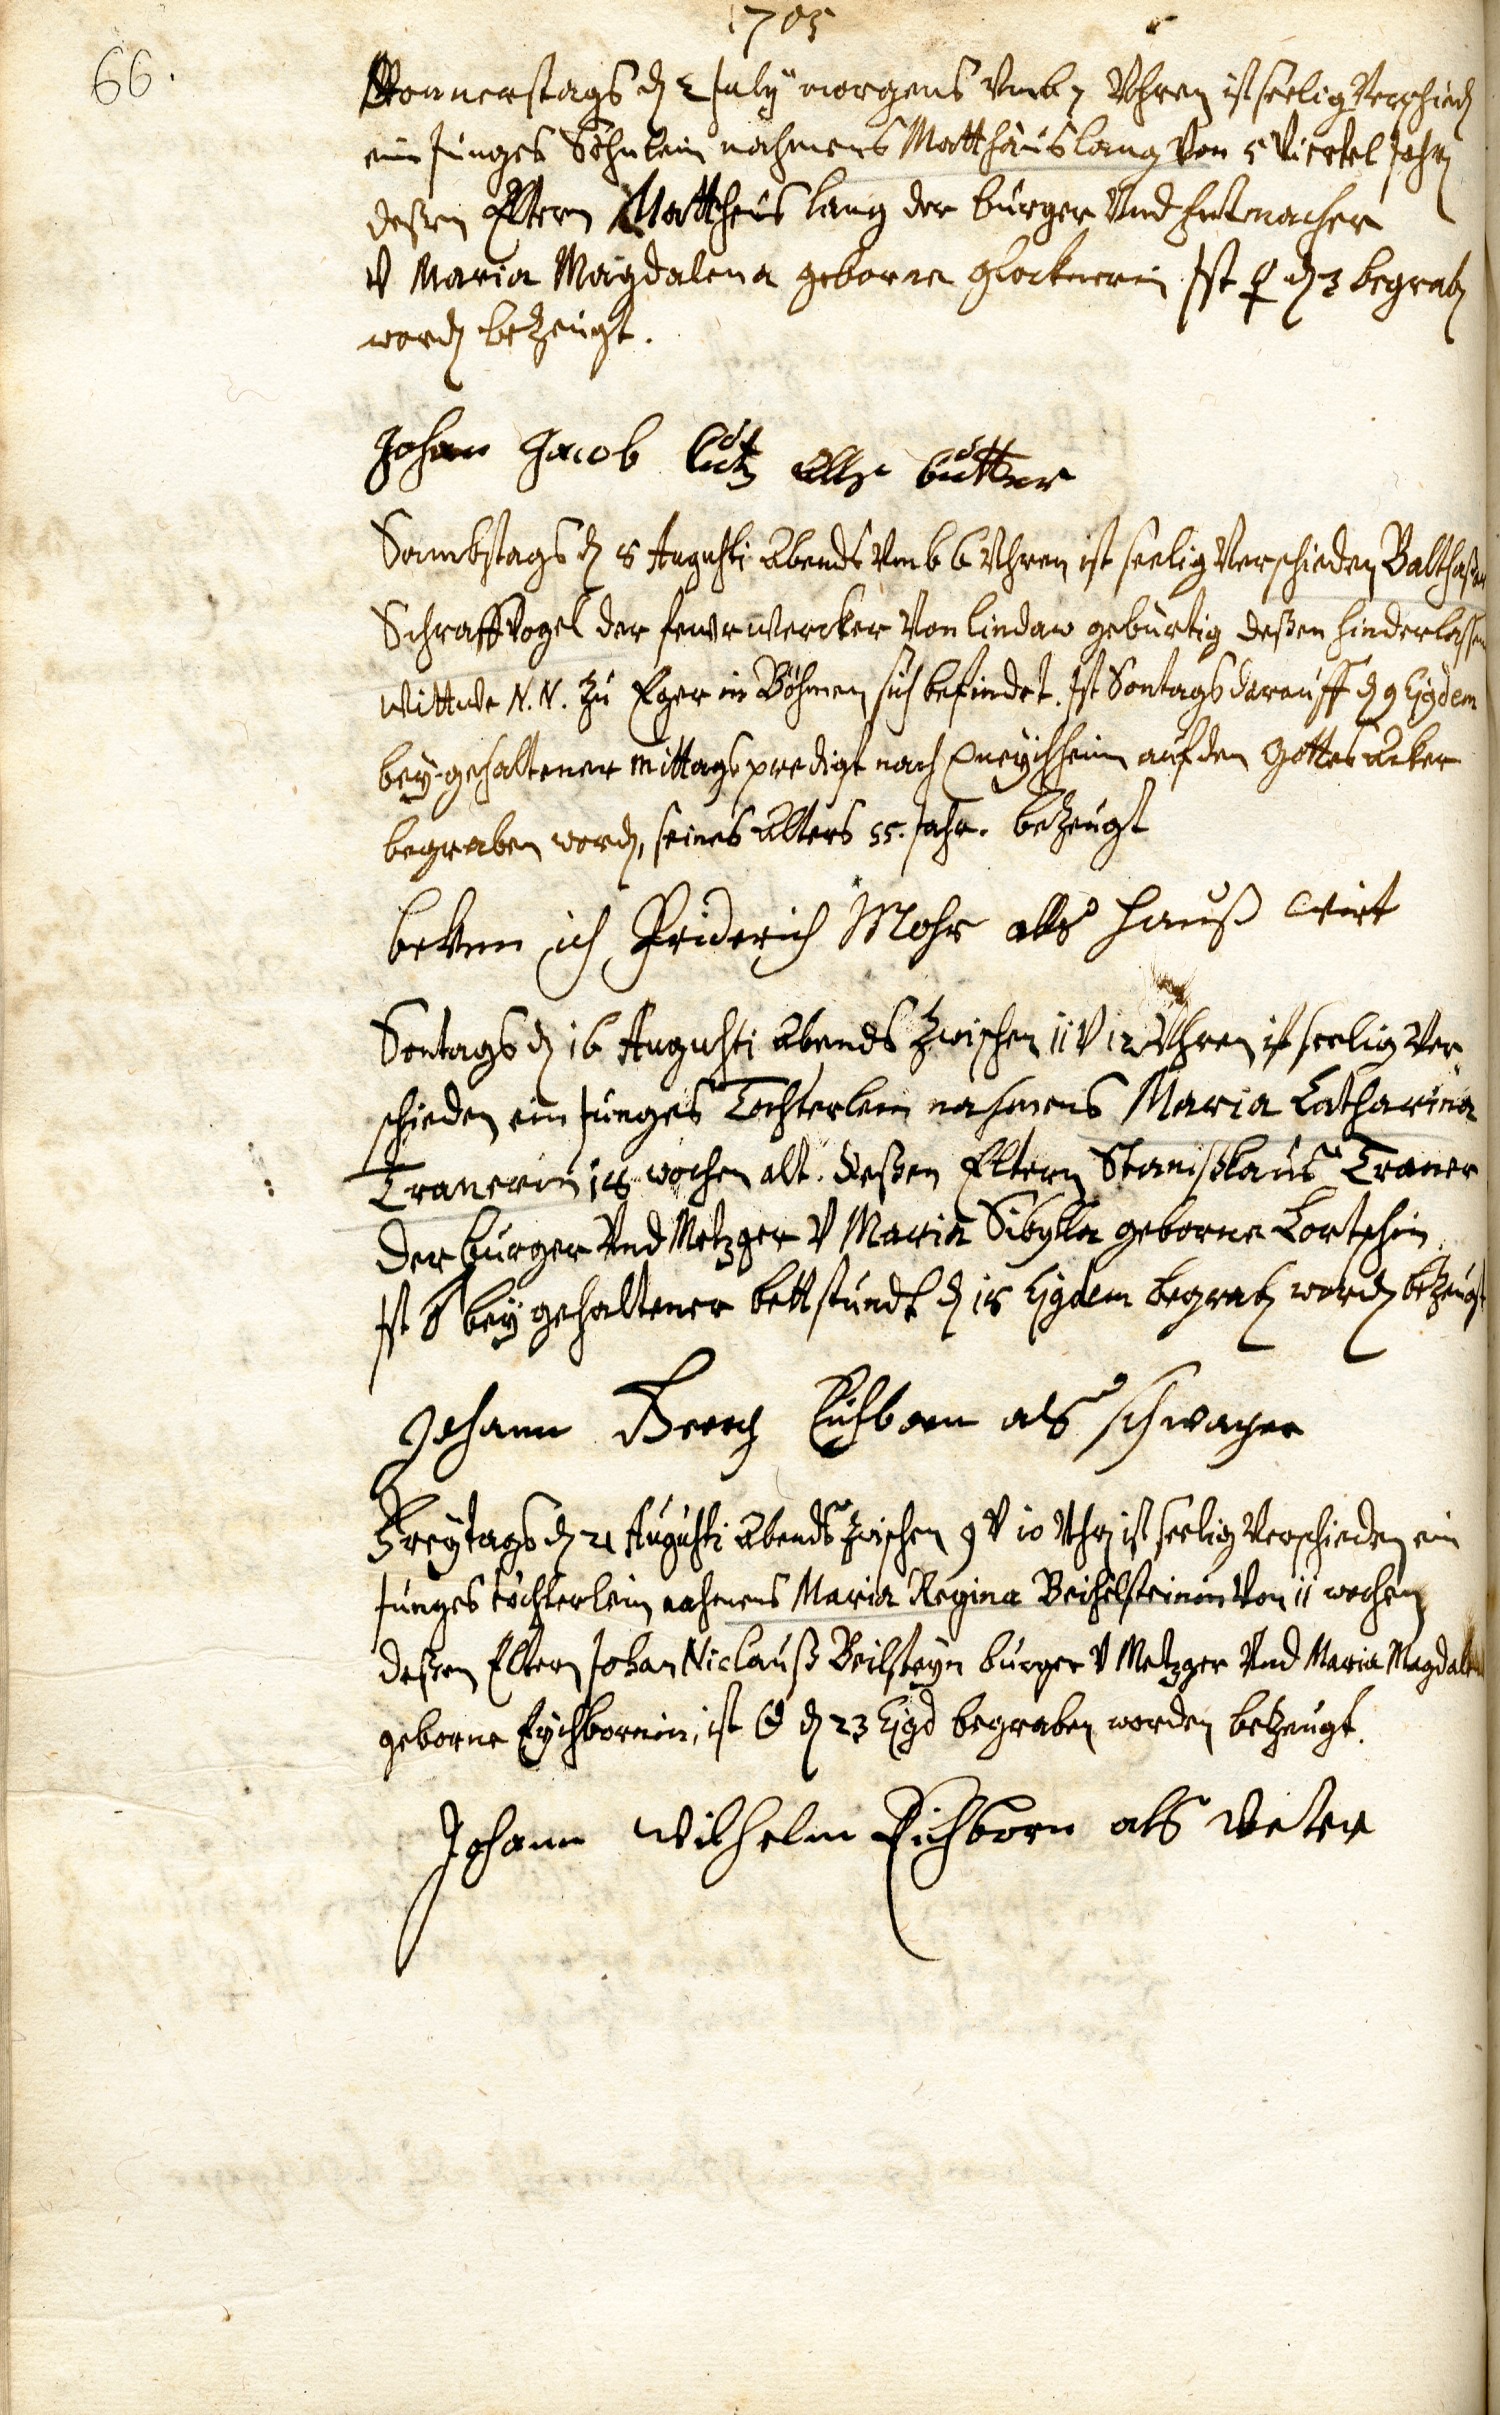 1705
66.
Donnerstags d 2 July morgens vmb 7 Vhren ist seelig Verschied
ein Junges Söhnlein nahmens Matthäus lang Von 5 Viertel Jahr
deßen Eltern Mattheus lang der burger Vnd Hutmacher
V Maria Magdalena geborne Glocknerin Ist ♀ d 3 begrab
word bezeugt.
Johan Jacob lutz alls
Sambstags d 8 Augusti Abends vmb 6 Vhren ist seelig Verschieden Balthaßar
Schraffvogel der fewrwercker Von lindaw gebürtig deßen hinderlassen
Wittwe N. N. zu Eger in Böhmen sich befindet. Ist Sontags darauff d 9 Ejgdem
bey gehaltener mittags predigt nach auf den Gottes Acker
begraben word, seines Alters 55. Jahr. bezeugt
beken ich Friderich Mohr alls hauß wirt
Sontags d 16 Augusti Abends zwischen 11 V 12 Vhren ist seelig Ver
schieden ein Junges Tochterlein nahmens Maria Catharina
Tranerin 18 wochen alt. deßen Eltern Stanißlaus Traner
der burger Vnd Metzger V Maria Sibylla geborne Lortschin
Ist ♂ bey gehaltener bettstundt d 18 Ejgdem begrab word bezeugt
Johann Eichborn als schwager
Freytags d 21 Augusti Abends zwischen 9 V 10 Vhr ist seelig Verschieden ein
Junges töchterlein nahmens Maria Regina Beihelsteinin Von 11 wochen
deßen Eltern Johan Niclauß Beilsteyn burger V Metzger Vnd Maria Magdalena
geborne Eychbornin, ist ☉ d 23 Ejgd begraben worden bezeugt.
Johann Wilhelm Eichborn als Veter